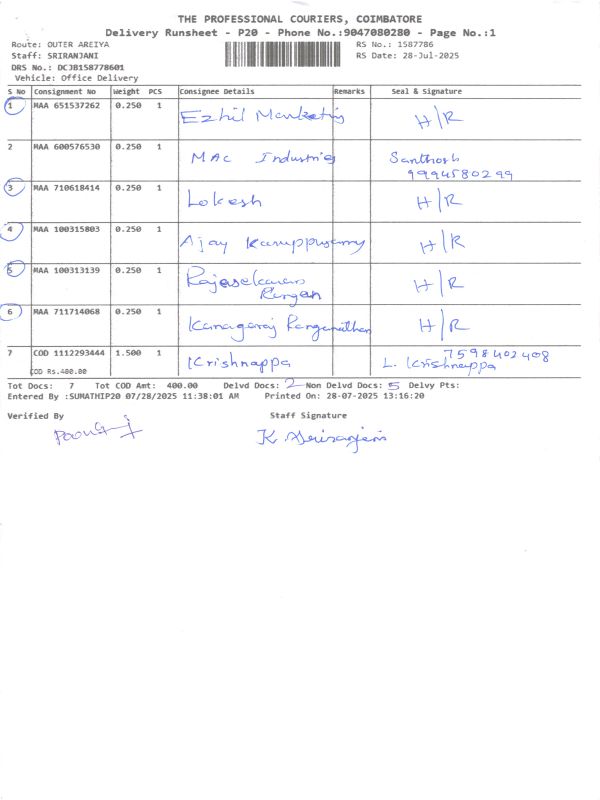 THE PROFESSIONAL COURIERS, COIMBATORE
Delivery Runsheet - P20 - Phone No.:9047080280 - Page No.:1
Route: OUTER AREIYA RS No.: 1587786
Staff: SRIRANJANI RS Date: 28-Jul-2025
DRS No.: DCJB158778601
Vehicle: Office Delivery
S No Consignment No Weight PCS Consignee Details Remarks Seal & Signature
1 MAA 651537262 0.250 1 Ezhil Marketing H/R
2 MAA 600576530 0.250 1 MAC Industries Santhosh
9994580299
3 MAA 710618414 0.250 1 Lokesh H/R
4 MAA 100315803 0.250 1 Ajay Karuppusamy H/R
5 MAA 100313139 0.250 1 Rajasekaran H/R
Rangan
6 MAA 711714068 0.250 1 Kanagaraj Ranganathan H/R
7 COD 1112293444 1.500 1 Krishnappa 7598402408
COD Rs.400.00 L. Krishnappa
Tot Docs: 7 Tot COD Amt: 400.00 Delvd Docs: 2 Non Delvd Docs: 5 Delvy Pts:
Entered By :SUMATHIP20 07/28/2025 11:38:01 AM Printed On: 28-07-2025 13:16:20
Verified By Staff Signature
K. Sriranjani